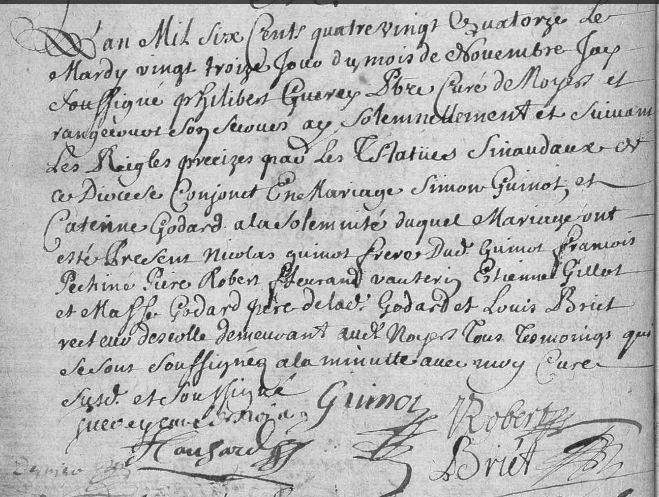 L'an Mil Six Cents quatre vingt & quatorze Le
Mardy vingt troize Jour du mois de Novembre Jay
Soussigné philibert Guerey Pbre Curé de Noyers et
son secours ay Solemnellement et suivant
Les Reigles precizes par Les Statues Sinaudaux de
ce Diocese Conjonct En Mariage Simon Guinot, et
Caterine Godard a la Solemnité duquel Mariage ont
esté Present Nicolas guinot frere Dud. Guinot, francois
Pechiné Piere Robert fleurand vauterin Estienne Gillot
et Masse Godard pere de lad. Godard et Louis Briet
recteur descolle demeurant aud. Noyers Tous Tesmoings qui
se sont soussignes a la minutte avec moy Curé
susd. et soussigné
guerey curé Guinot Robert
Briét